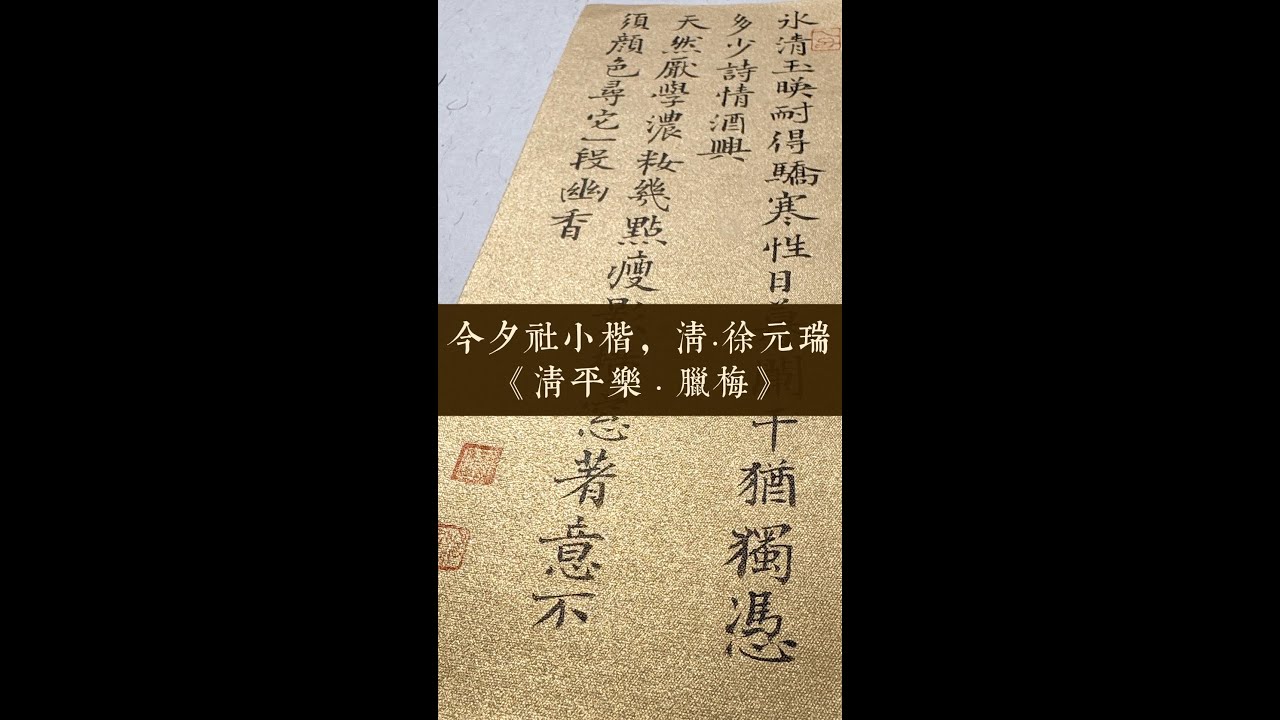 氷清玉暎耐得驕寒性日闌干猶獨憑
多少詩情酒興
天然厭學濃籹幾點瘦著意不
須顔色尋它一段幽香
今夕社小楷，清·徐元瑞
《清平樂·臘梅》